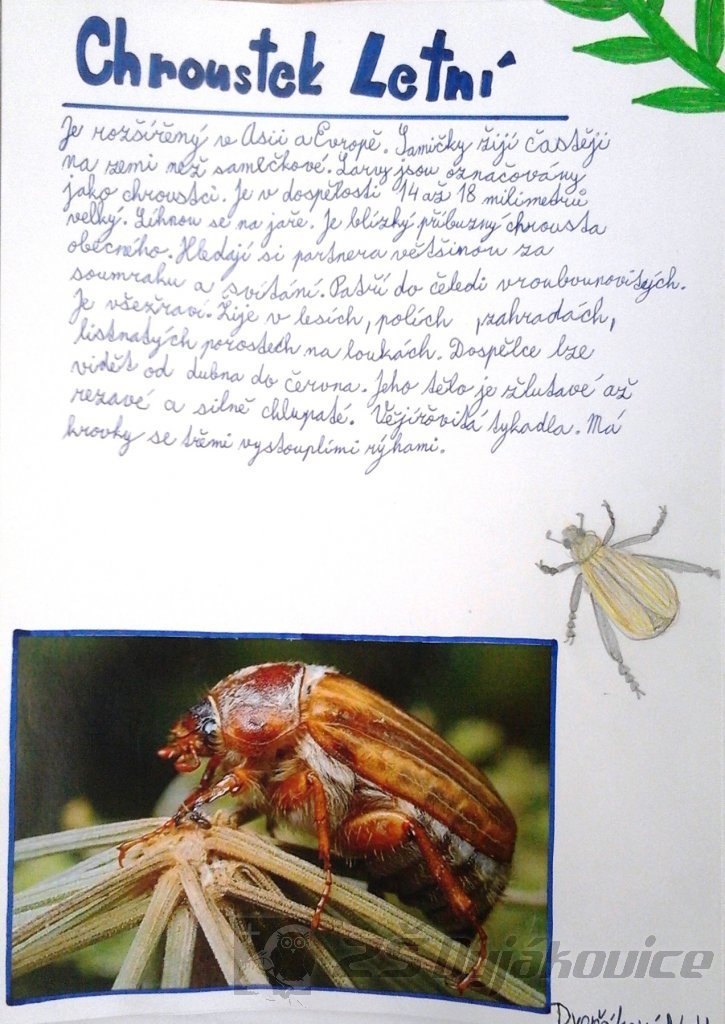 Chroustek Letní
Je rozšířěný v Asii a Evropě. Samičky žijí častěji
na zemi než samečkové. Larvy jsou označovány
jako chroustci. Je v dospělosti 14 až 18 milimetrů
velký. Líhnou se na jaře. Je blízký příbuzný chrousta
obecného. Hledají si partnera většinou za
soumraku a svítání. Patří do čeledi vroubounovitých.
Je všežraví. Žije v lesích, polích, zahradách,
listnatých porostech na loukách. Dospělce lze
vidět od dubna do června. Jeho tělo je žlutavé až
rezavé a silně chlupaté. Vějířovitá tykadla. Má
krovky se třemi vystouplími rýhami.
ZŠ Dyjákovice